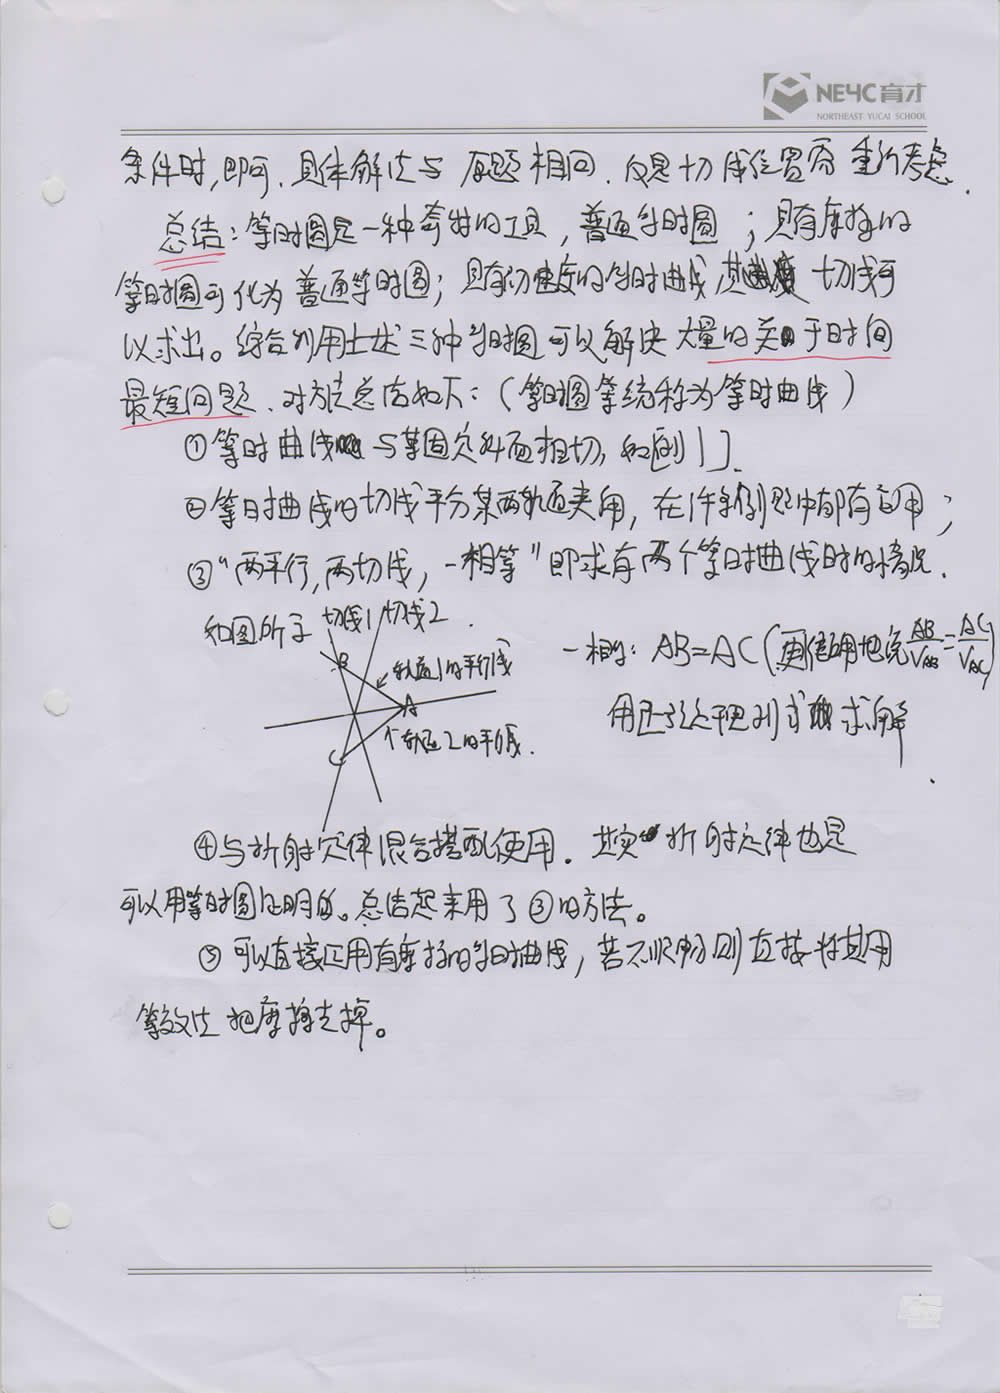 NEYC育才
NORTHEAST YUCAI SCHOOL
条件时,即可.具体解法与原题相同.仅是切线位置需重新考虑.
总结:等时圆是一种奇特的工具,普通等时圆;具有摩擦的
等时圆可化为普通等时圆;具有初速度的等时曲线其切线可
以求出。综合利用上述三种等时圆可以解决大量的关于时间
最短问题.对方法总结如下:(等时圆等统称为等时曲线)
①等时曲线与某固定斜面相切,如例1].
②等时曲线的切线平分某两轨道夹角,在许多例题中都有应用;
③“两平行,两切线,一相等”即求有两个等时曲线时的情况.
如图所示 切线1 切线2
B
轨道1的平行线
A
轨道2的平行线.
C
一相等:AB=AC(更准确地说AB/VAB=AC/VAC)
用正弦定理列式求解
④与折射定律混合搭配使用.其实折射定律也是
可以用等时圆证明的。总结起来用了③的方法。
⑤可以直接应用有摩擦的等时曲线,若不顺畅则直接将其用
等效法把摩擦去掉。